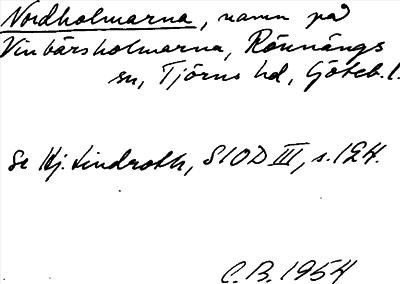 Nordholmarna, namn på
Vinbärsholmarna, Rönnängs
sn, Tjörns hd, Göteb. l.
Se Hj. Lindroth, SIOD III, s. 124.
C.B. 1954